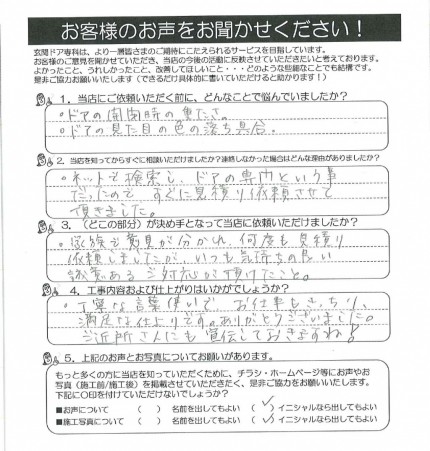 お客様のお声をお聞かせください！
玄関ドア専科は、より一層皆さまのご期待にこたえられるサービスを目指しています。
お客様のご意見を聞かせていただき、当店の今後の活動に反映させていただきたいと考えております。
よかったこと、うれしかったこと、改善してほしいこと・・・どのような些細なことでも結構です。
是非ご協力お願いいたします（できるだけ具体的に書いていただけると助かります！）
1．当店にご依頼いただく前に、どんなことで悩んでいましたか？
・ドアの開閉時の重たさ。
・ドアの見た目の色の落ち具合。
2．当店を知ってからすぐに相談いただけましたか？連絡しなかった場合はどんな理由がありましたか？
・ネットで検索し、ドアの専門という事
だったので すぐに見積り依頼させて
頂きました。
3．（どこの部分）が決め手となって当店に依頼いただけましたか？
・家族で意見が分かれ、何度も見積り
依頼しましたが、いつも気持ちの良い
誠意あるご対応が頂けたこと。
4．工事内容および仕上がりはいかがでしょうか？
・丁寧な言葉使いで、お仕事もきっちり、
満足な仕上りです。ありがとうございました。
ご近所さんにも宣伝しておきますね！
5．上記のお声とお写真についてお願いがあります。
もっと多くの方に当店を知っていただくために、チラシ・ホームページ等にお声やお
写真（施工前/施工後）を掲載させていただきたく、是非ご協力をお願いいたします。
下記に〇印を付けていただけないでしょうか？
■お声について （ ） 名前を出してもよい （✓）イニシャルなら出してもよい
■施工写真について （ ） 名前を出してもよい （✓）イニシャルなら出してもよい